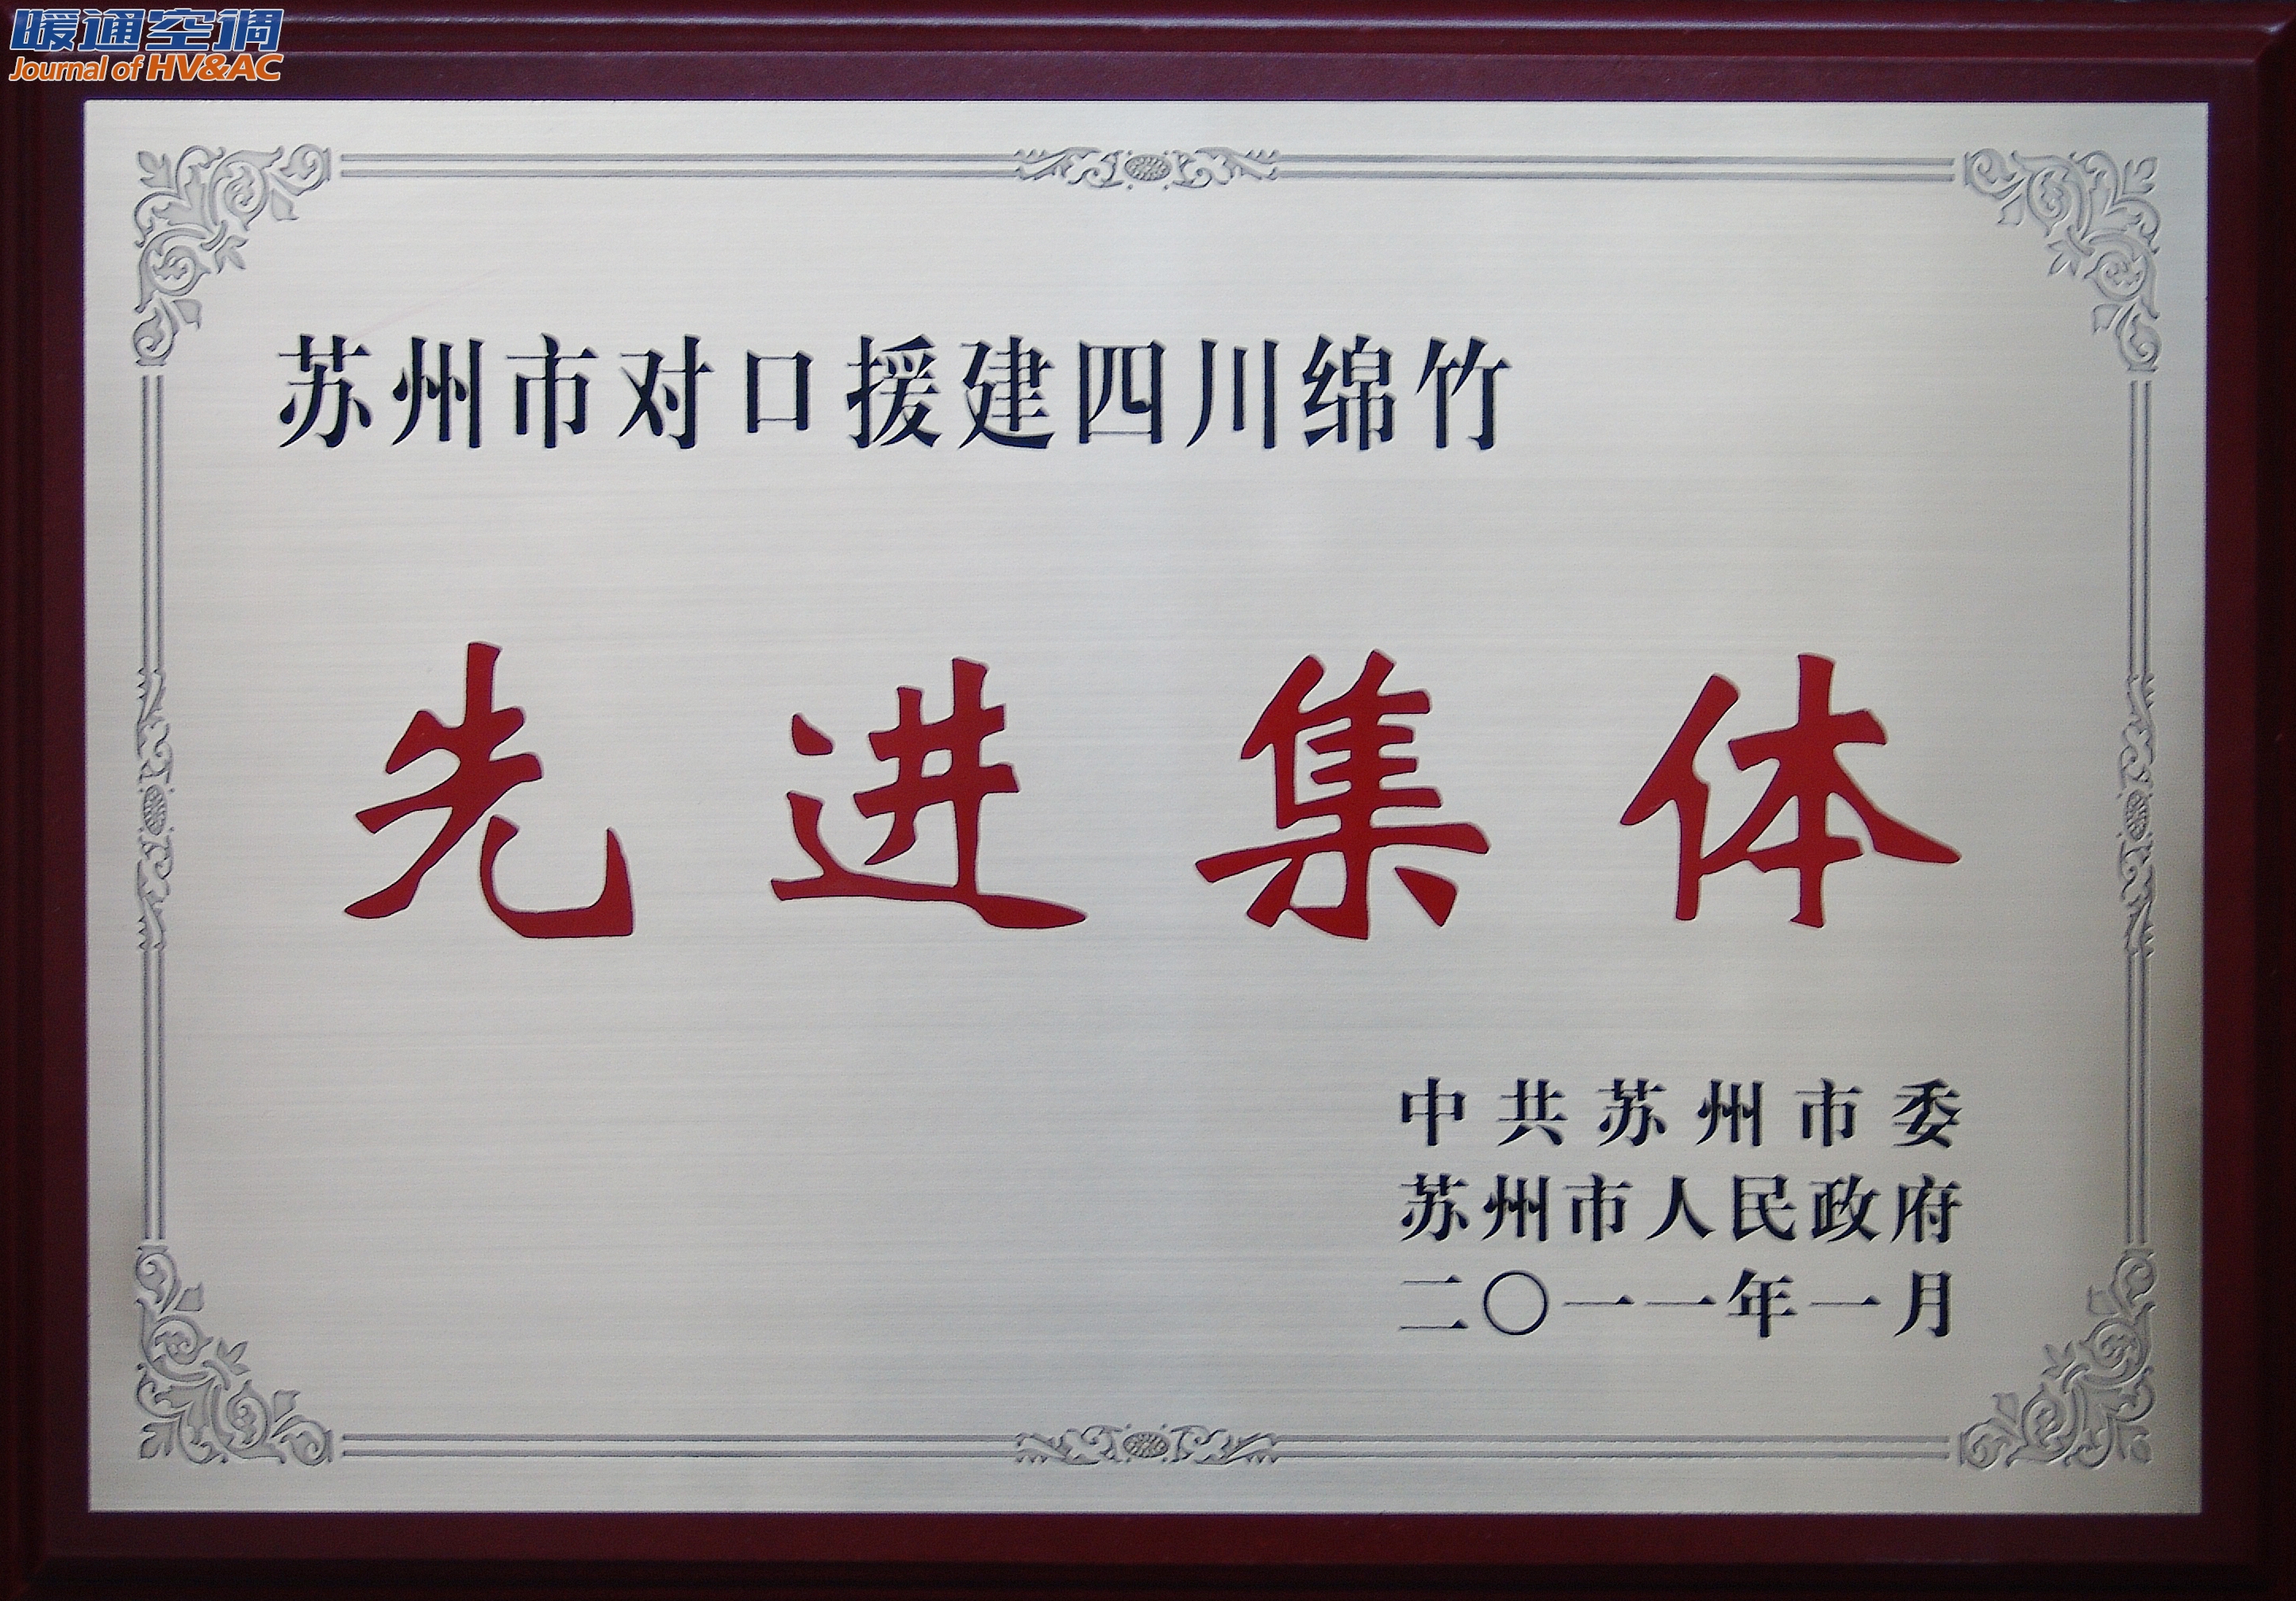 暖通空调
Journal of HV&AC
苏州市对口援建四川绵竹
先进集体
中共苏州市委
苏州市人民政府
二〇一一年一月